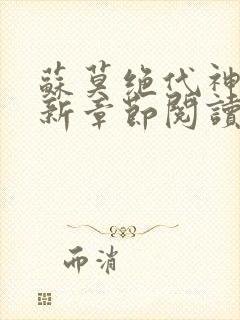 蘇莫絕代神
新章節閱讀
而消